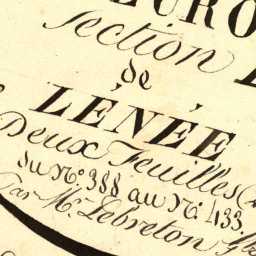 Section
de
LÉNÉE
Deux Feuilles
du N.º 388 au N.º 433.
Par M.r Lebreton